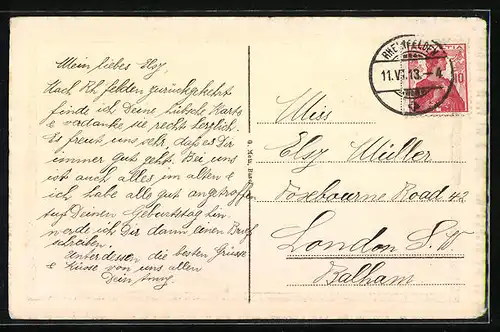 Mein liebes Elsy,
Nach Rhfelden zurückgekehrt
finde ich Deine hübsche Karte
& verdanke sie recht herzlich.
Es freut uns sehr, daß es Dir
immer gut geht. Bei uns
ist auch alles im alten &
ich habe alle gut angetroffen
Auf Deinen Geburtstag hin
werde ich Dir dann einen Brief
schreiben.
Unterdessen die besten Grüsse
& Küsse von uns allen
Dein
RHEINFELDEN
11.VI.13.-4
HELVETIA
10
Miss
Elsy Müller
Foxbourne Road 42
London S.W.
Balham
G. Metz, Basel